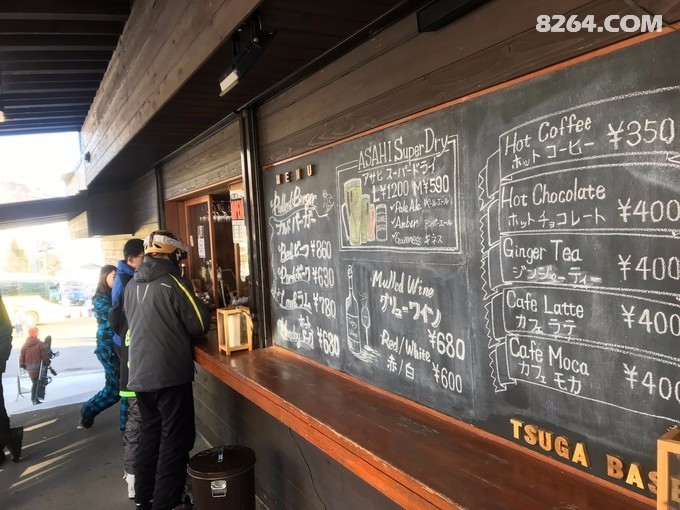 8264.COM
MENU
Pulled Burger
プルド バーガー
Beef ビーフ ¥860
Pork ポーク ¥630
Lamb ラム ¥780
¥680
ASAHI Super Dry
アサヒ スーパードライ
L ¥1200 M ¥590
Pale Ale ペールエール
Amber アンバーエール
Guinness ギネス
Mulled Wine
グリューワイン
¥680
Red/White
赤/白 ¥600
Hot Coffee ¥350
ホット コーヒー
Hot Chocolate ¥400
ホットチョコレート
Ginger Tea ¥400
ジンジャーティー
Cafe Latte ¥400
カフェ ラテ
Cafe Moca ¥400
カフェ モカ
TSUGA BASE